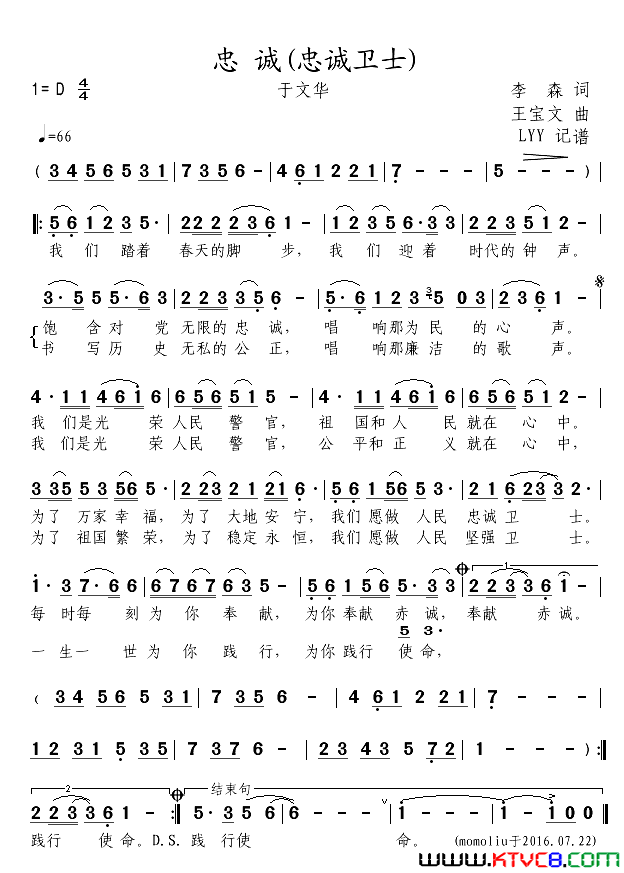 忠 诚(忠诚卫士)
1=D 4/4
于文华
李 森 词
王宝文 曲
LYY 记谱
♩=66
( 3 4 5 6 5 3 1 | 7 3 5 6 - | 4 6 1 2 2 1 | 7 - - - | 5 - - - ) |
‖: 5 6 1 2 3 5 · | 2 2 2 2 3 6 1 - | 1 2 3 5 · 3 3 | 2 2 2 3 5 1 2 - |
我 们 踏着 春天的脚 步, 我 们 迎 着 时代的 钟 声。
3 · 5 5 5 · 6 6 3 | 2 2 3 3 5 6 - | 5 · 6 1 2 3 3 5 0 3 | 2 2 3 6 1 - |
饱 含对 党 无限的 忠 诚, 唱 响那为 民 的 心 声。
书 写历 史 无私的 公 正, 唱 响那廉 洁 的 歌 声。
4 · 1 1 4 6 1 6 | 6 5 6 5 1 - | 4 · 1 1 4 6 1 6 | 6 5 6 5 1 2 - |
我 们是光 荣 人民 警 官, 祖 国和 人 民 就在 心 中。
我 们是光 荣 人民 警 官, 公 平和 正 义 就在 心 中,
3 3 5 5 3 5 6 5 · | 2 2 3 2 1 2 1 6 · | 5 6 1 5 6 5 3 5 · | 2 1 6 2 3 3 - |
为了 万家 幸 福, 为了 大地 安 宁, 我们 愿做 人民 忠诚 卫 士。
为了 祖国 繁 荣, 为了 稳定 永 恒, 我们 愿做 人民 坚强 卫 士。
1 · 3 7 · 6 6 | 6 7 6 7 6 3 - | 6 6 1 5 6 5 · 3 3 | 2 2 3 3 6 1 - |
每 时每 刻 为 你 奉 献, 为你 奉献 赤 诚, 奉献 赤 诚。
5 3 ·
一 生一 世 为 你 践 行, 为你 践行 使 命,
( 3 4 5 6 5 3 1 | 1 7 3 5 - | 4 6 1 2 2 1 | 7 - - - |
1 2 3 1 5 3 5 | 7 6 3 5 6 - | 2 3 4 3 5 7 2 | 1 - - - ) :‖
2 结束句
2 2 3 3 6 1 - :‖ 5 · 3 5 6 - - | 1 - - - | 1 - 1 0 0 ‖
践行 使 命。D.S. 践 行使 命。 (momoliu于2016.07.22)
www.KTVC8.com